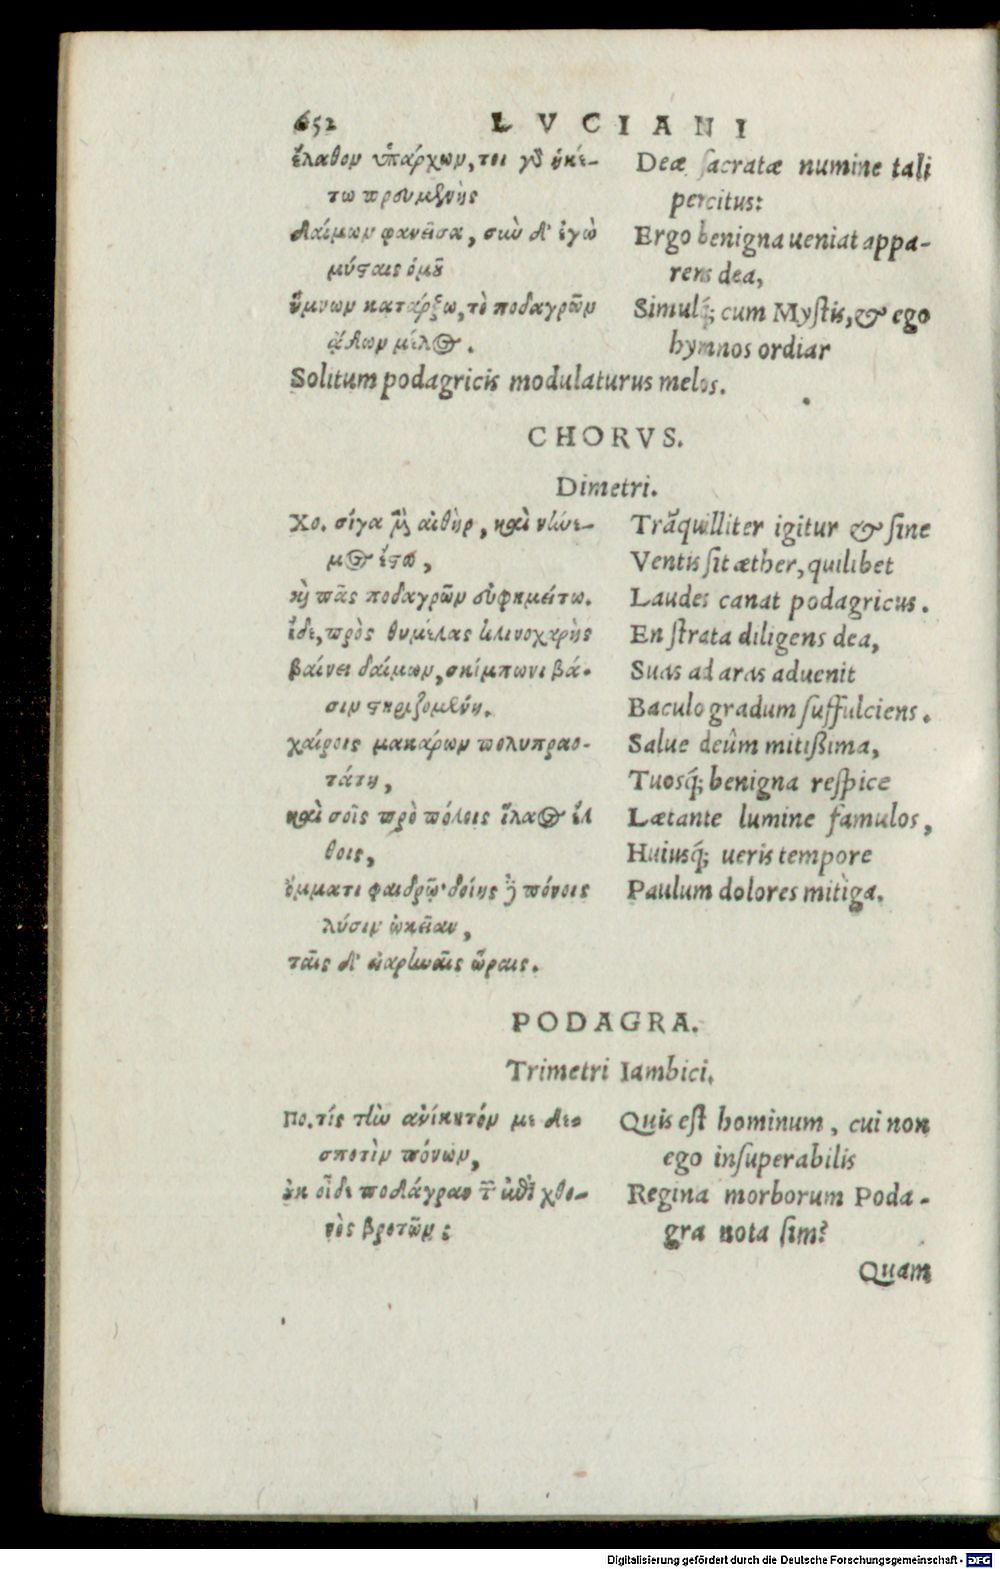 652 LVCIANI
ἔλαθον ὑπάρχων, τοι γὰρ ἡκέ-
τω πρευμενὴς
δαίμων φανεῖσα, σὺν δ' ἐγὼ
μύσταις ὁμοῦ
ὕμνων κατάρξω, τὸ ποδαγρῶν
ᾄδων μέλος.
Deæ sacratæ numine tali
percitus:
Ergo benigna ueniat appa-
rens dea,
Simulq́; cum Mystis, & ego
hymnos ordiar
Solitum podagricis modulaturus melos.
CHORVS.
Dimetri.
Χο. σίγα μὲν αἰθὴρ, καὶ νήνε-
μος ἔστω,
καὶ πᾶς ποδαγρῶν εὐφημείτω.
ἴδε, πρὸς θυμέλας κλινοχαρὴς
βαίνει δαίμων, σκίμπωνι βά-
σιν στηριζομένη.
χαίροις μακάρων πολυπραο-
τάτη,
καὶ σοῖς προπόλοις ἵλαος ἔλ
θοις,
ὄμματι φαιδρῷ· δοίης δὲ πόνοις
λύσιν ὠκεῖαν,
ταῖς δ' εἰαριναῖς ὥραις.
Trãquilliter igitur & sine
Ventis sit æther, quilibet
Laudes canat podagricus.
En strata diligens dea,
Suas ad aras aduenit
Baculo gradum suffulciens.
Salue deûm mitißima,
Tuosq́; benigna respice
Lætante lumine famulos,
Huiusq́; ueris tempore
Paulum dolores mitiga.
PODAGRA.
Trimetri Iambici.
Πο. τίς τὴν ἀνίκητόν με δεσ
σπότιν πόνων,
οὐκ οἶδε ποδάγραν τῶν ἐπὶ χθο-
νὸς βροτῶν;
Quis est hominum, cui non
ego insuperabilis
Regina morborum Poda-
gra nota sim?
Quam
Digitalisierung gefördert durch die Deutsche Forschungsgemeinschaft - DFG